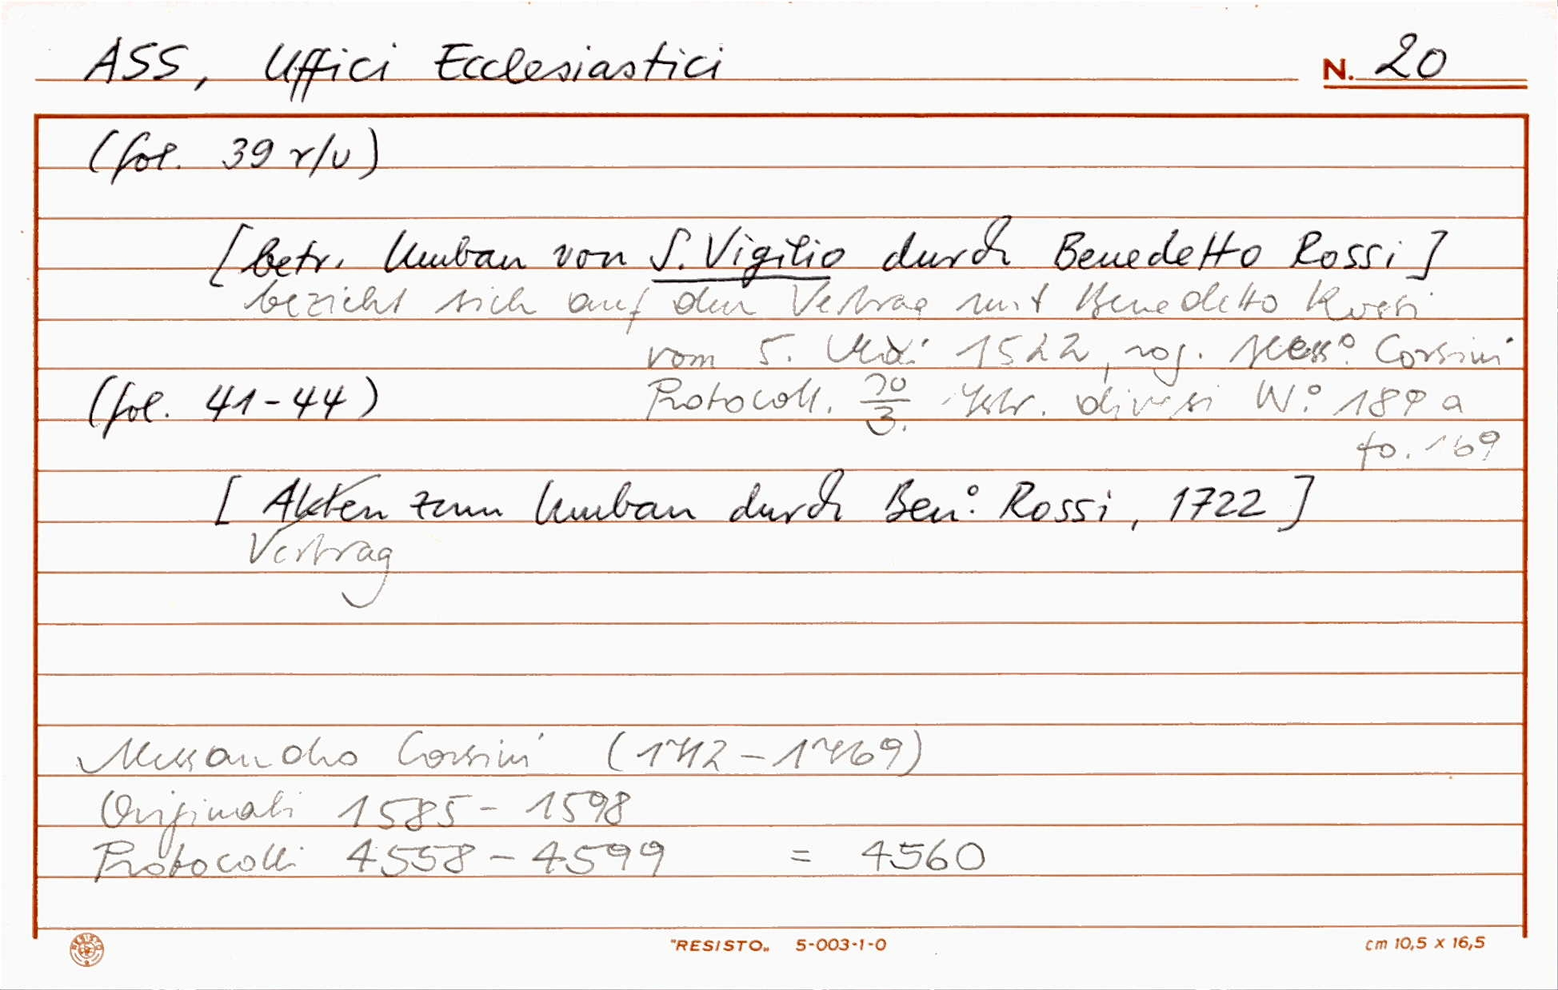 ASS, Uffici Ecclesiastici N. 20
(fol. 39 r/v)
[betr. Umbau von S. Vigilio durch Benedetto Rossi]
bezieht sich auf den Vertrag mit Benedetto Rossi
vom 5. 1522, rog. Aless.º Corsini
(fol. 41-44) Protocoll. 20/3. diversi Nº. 189 a
fo. 169
[Akten zum Umbau durch Ben.º Rossi, 1722]
Vertrag
Alessandro Corsini (1712-1769)
Originali 1585-1598
Protocolli 4558-4599 = 4560
RESISTO
"RESISTO„ 5-003-1-0 cm 10,5 x 16,5